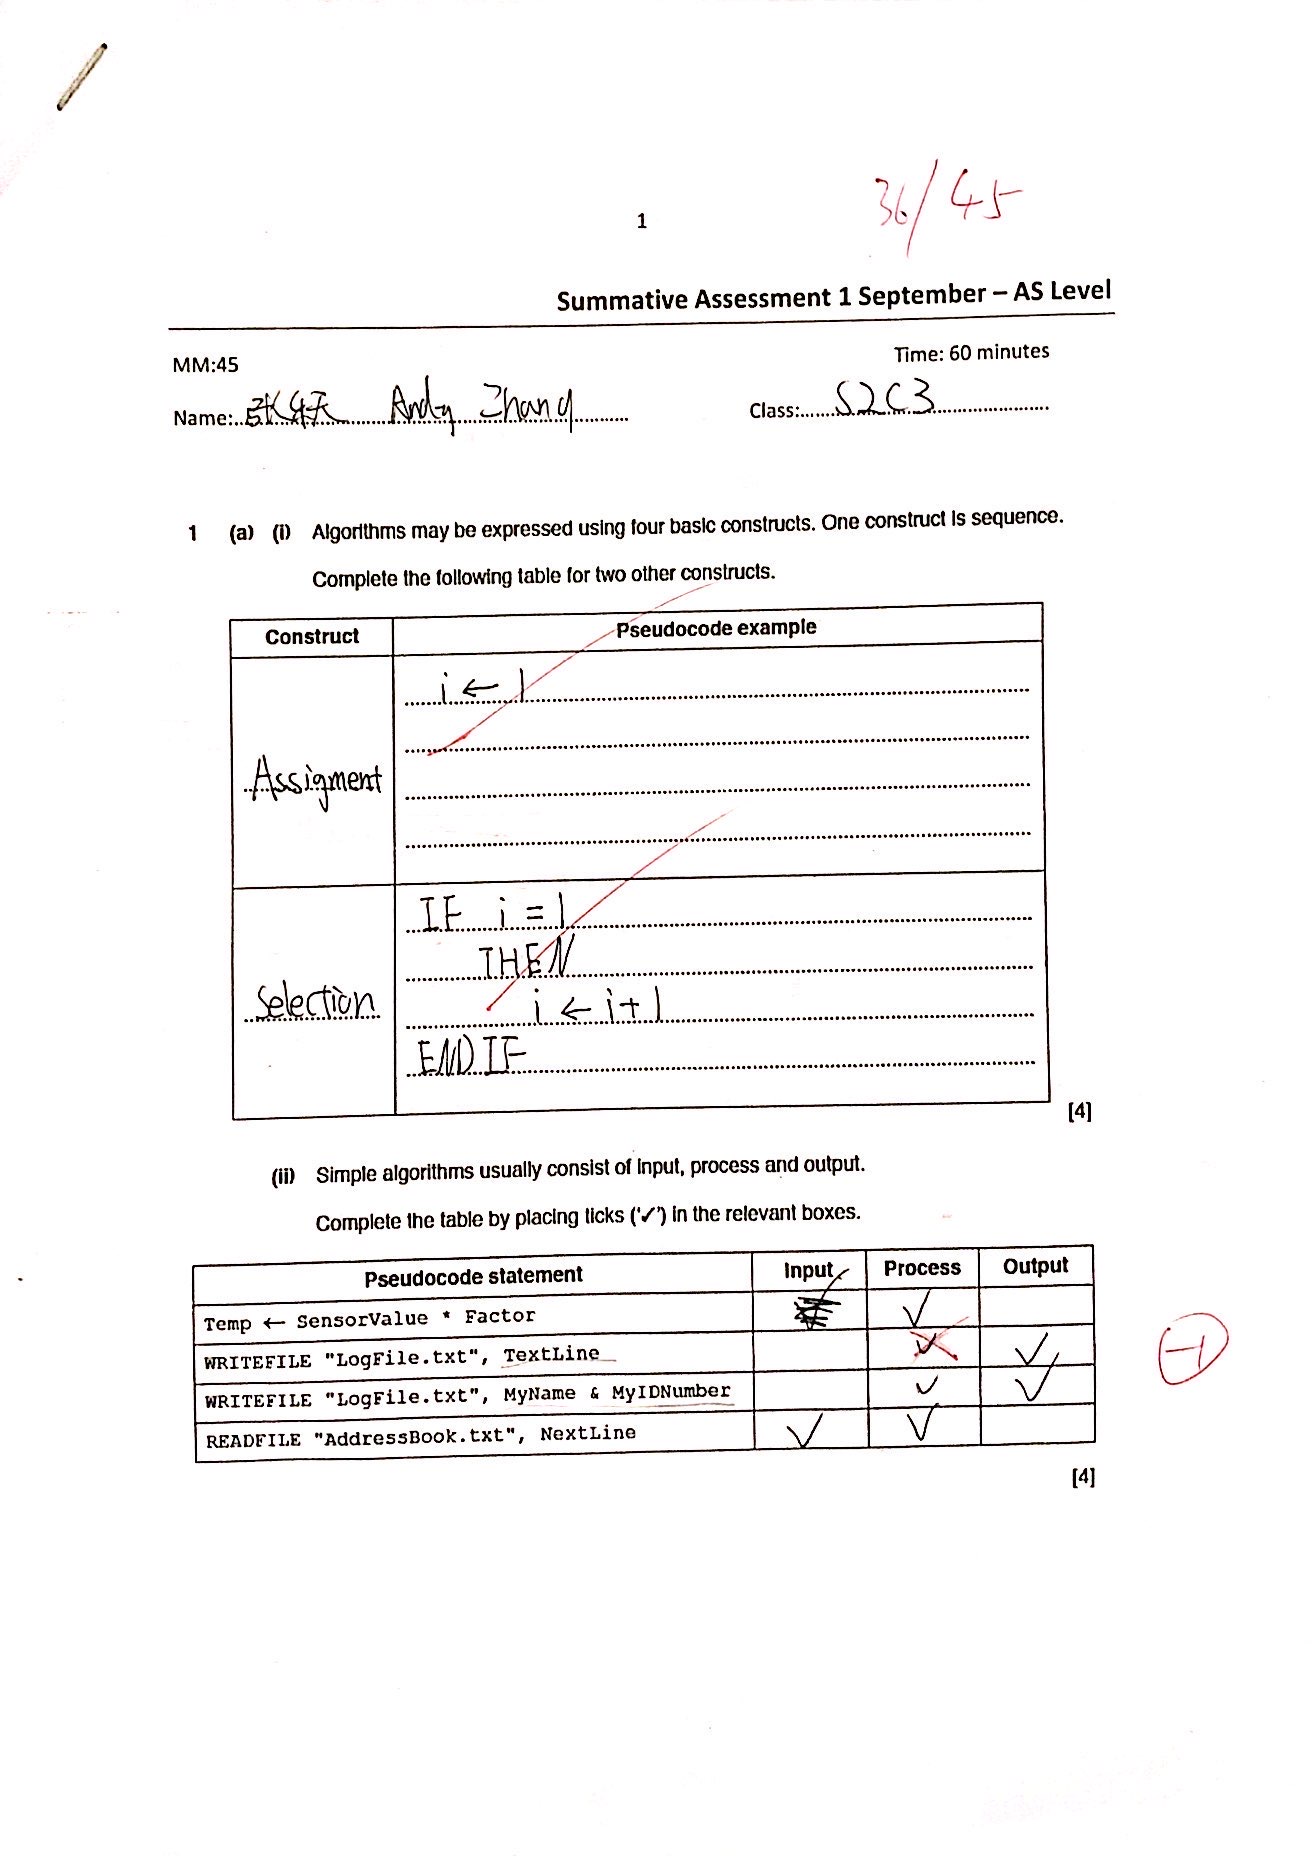 36/45
1
Summative Assessment 1 September – AS Level
MM:45
Time: 60 minutes
Name: 张 Andy Zhang
Class: S2C3
1 (a) (i) Algorithms may be expressed using four basic constructs. One construct is sequence.
Complete the following table for two other constructs.
Construct Pseudocode example
Assigment
i ← 1
Selection
IF i = 1
THEN
i ← i+1
END IF
[4]
(ii) Simple algorithms usually consist of input, process and output.
Complete the table by placing ticks ('✓') in the relevant boxes.
Pseudocode statement Input Process Output
Temp ← SensorValue * Factor ✓
WRITEFILE "LogFile.txt", TextLine ✓ ✓
-1
WRITEFILE "LogFile.txt", MyName & MyIDNumber ✓ ✓
READFILE "AddressBook.txt", NextLine ✓ ✓
[4]